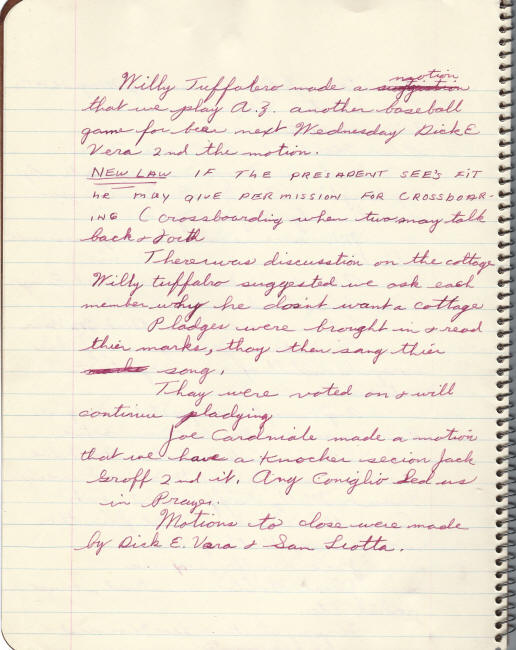 motion
Willy Tuffalero made a suggestion
that we play A.Z. another baseball
game for beer next Wednesday Dick E
Vera 2nd the motion.
NEW LAW IF THE PRESADENT SEE'S FIT
HE MAY GIVE PERMISSION FOR CROSSBOAR-
ING (crossboarding when two may talk
back & forth
There was discusstion on the cottage
Willy tuffalro suggested we ask each
member why he dosint want a cottage
Pladges were brought in & read
thier marks, thay then sang thier
marks song.
Thay were voted on & will
continue pladying
Joe Cardniale made a motion
that we have a Knocher secion Jack
Groff 2nd it. Any Coniglio Led us
in Prayer.
Motions to close were made
by Dick E. Vara & San Liotta.